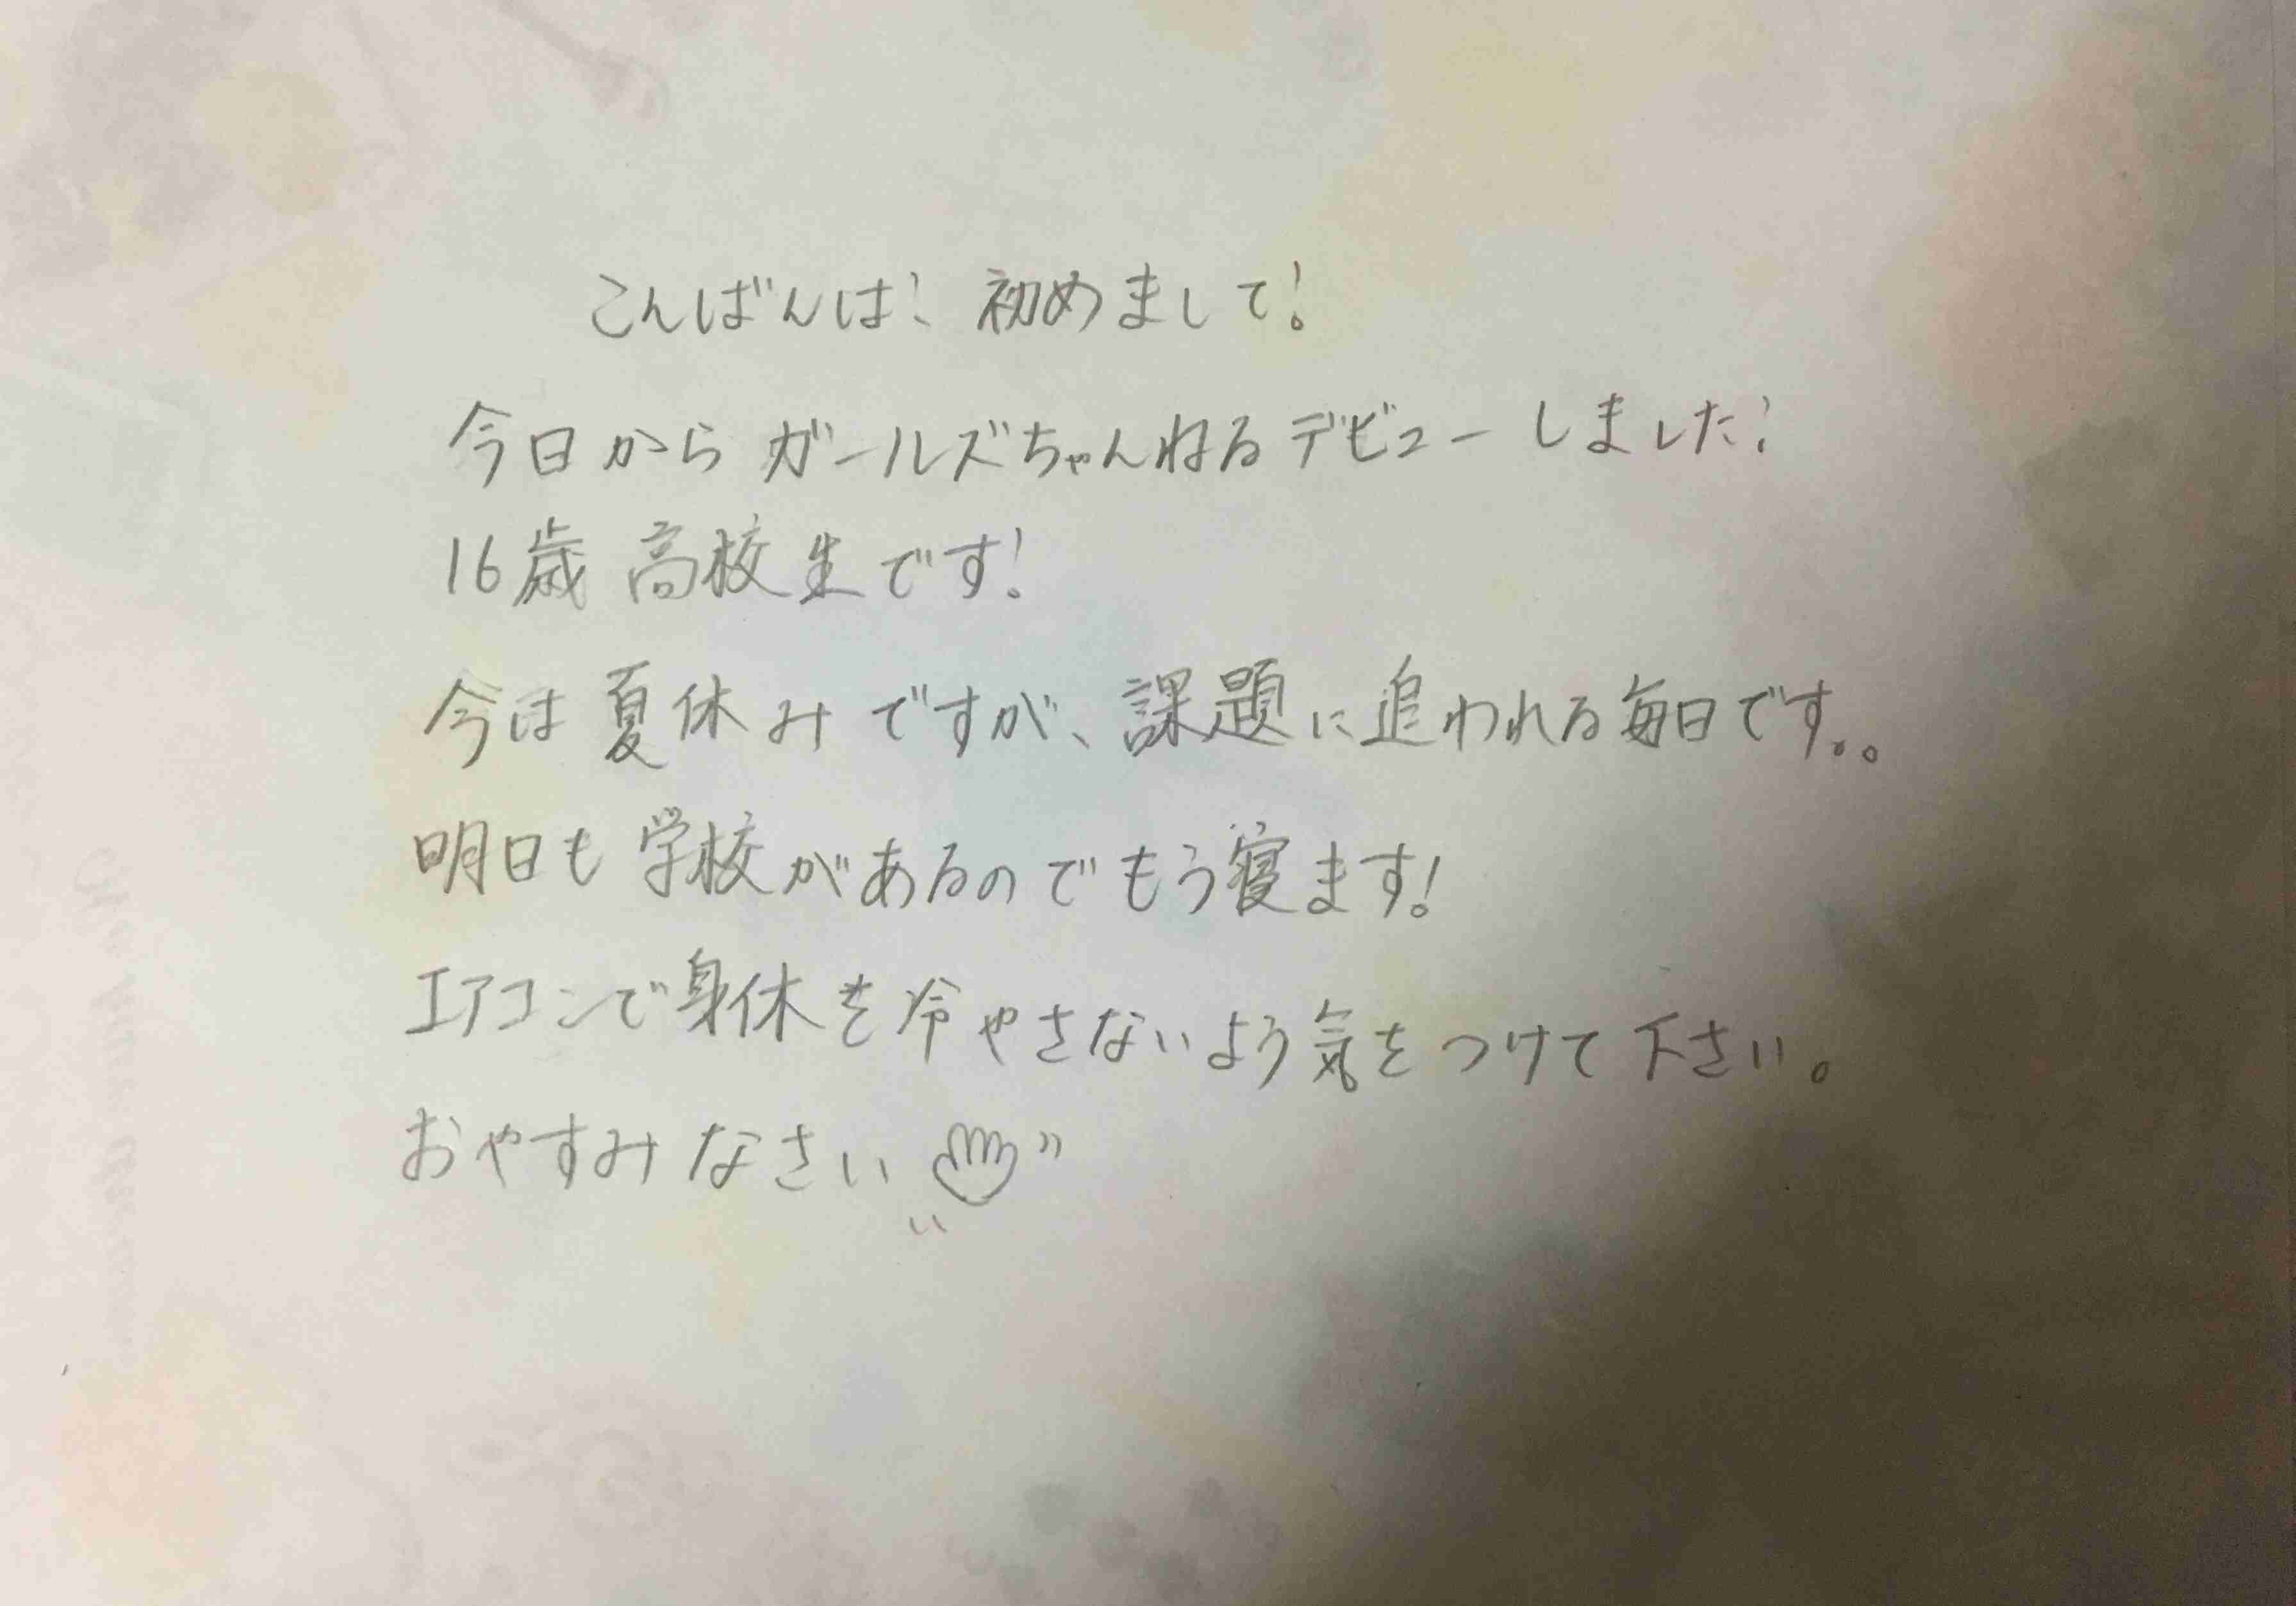 こんばんは！ 初めまして！
今日からガールズちゃんねるデビューしました！
16歳 高校生です！
今は夏休みですが、課題に追われる毎日です。。
明日も学校があるのでもう寝ます！
エアコンで身休を冷やさないよう気をつけて下さい。
おやすみなさい